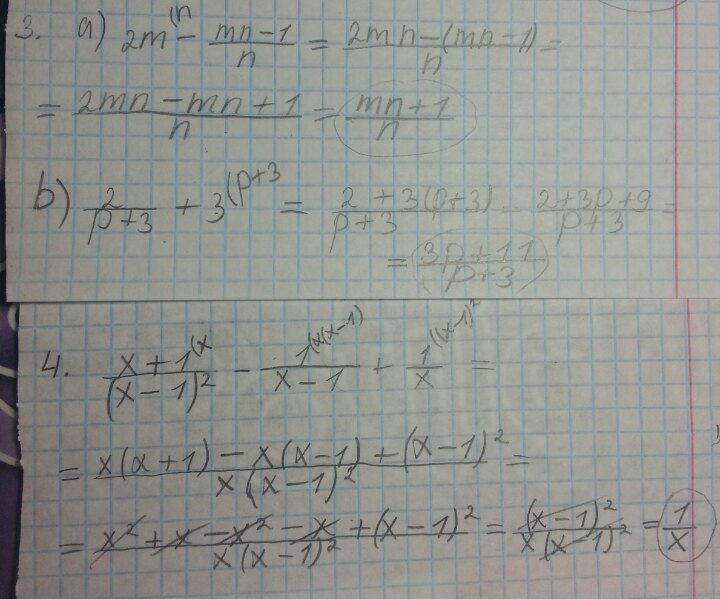 3. a) 2m^(n - (mn-1)/n = (2mn-(mn-1))/n =
= (2mn-mn+1)/n = (mn+1)/n
b) 2/(p+3) + 3^(p+3 = (2+3(p+3))/(p+3) = (2+3p+9)/(p+3) =
= (3p+11)/(p+3)
4. (x+1^(x)/(x-1)^2 - 1^(x(x-1)/(x-1) + 1^((x-1)^2/x =
= (x(x+1)-x(x-1)+(x-1)^2)/(x(x-1)^2) =
= (x^2+x-x^2-x+(x-1)^2)/(x(x-1)^2) = (x-1)^2/(x(x-1)^2) = 1/x